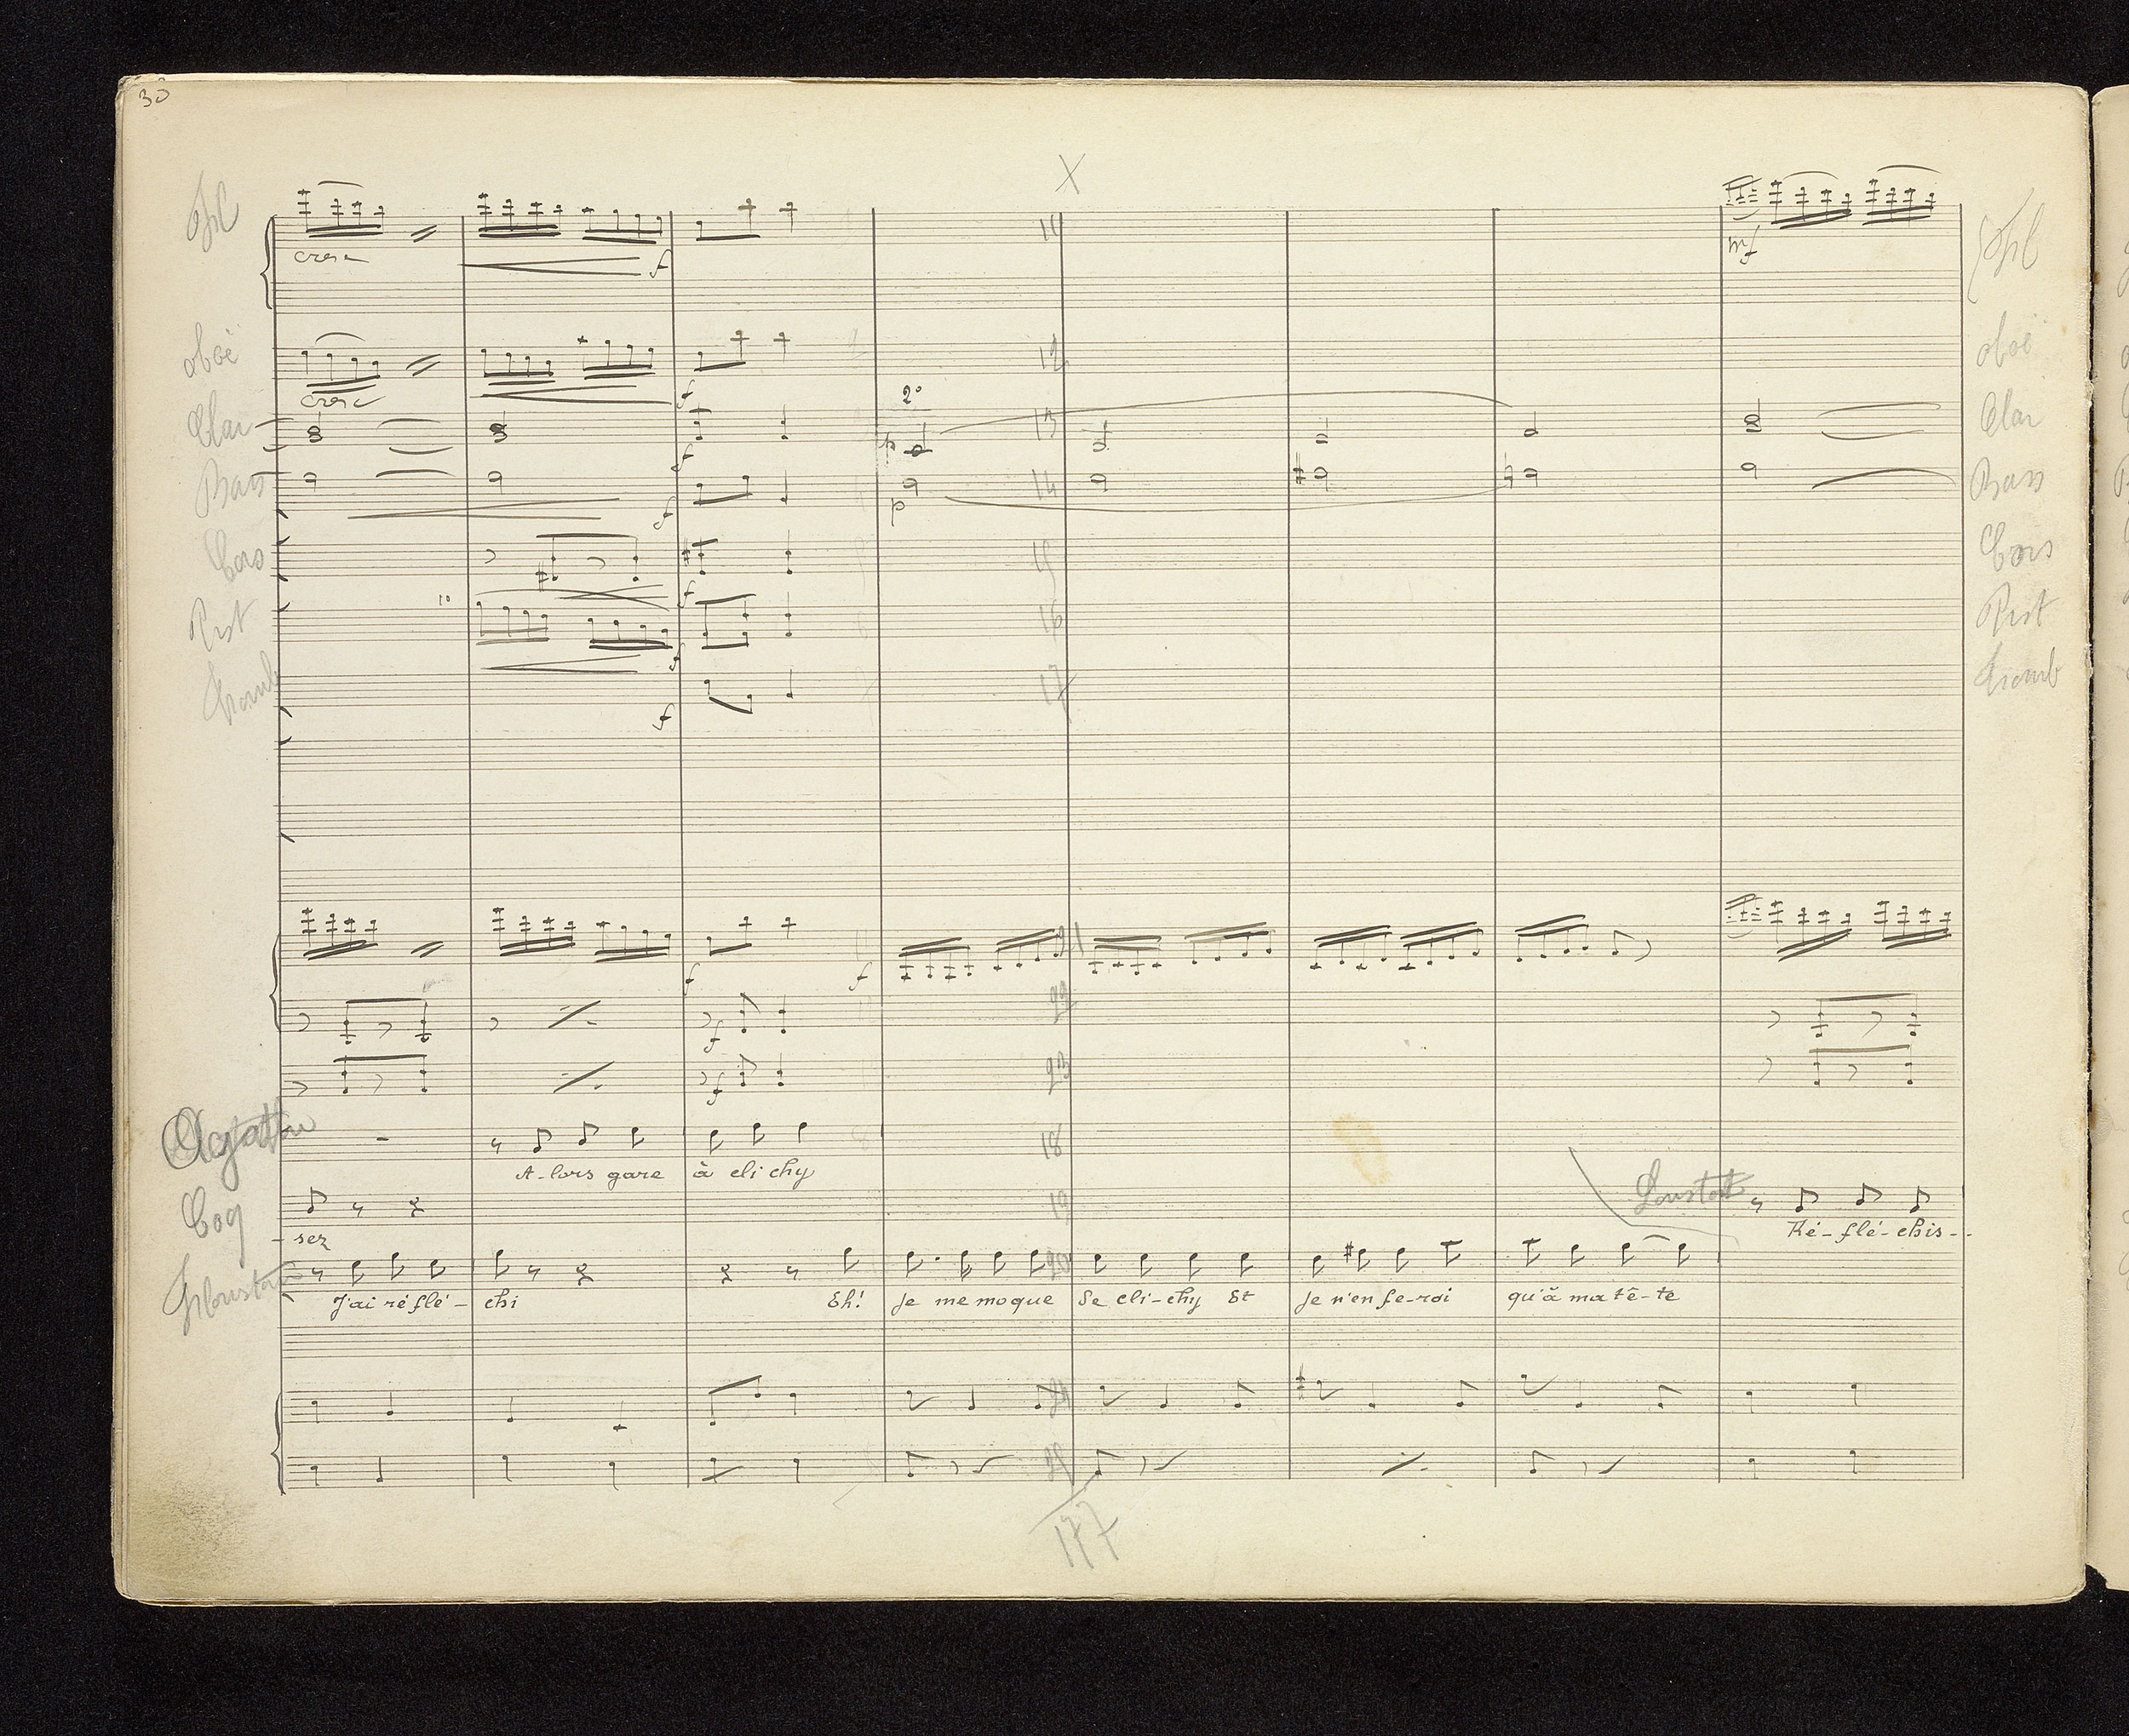 30
X
cresc
f
mf
oboë
oboë
cresc
f
2°
Clar
f
p
Clar
Bass
f
p
Bass
Cors
f
Cors
1°
Pist
f
Pist
Tromb
f
Tromb
11
12
13
14
15
16
17
f
f
21
22
f
23
f
18
Agathe
A-lors gare à cli chy
19
Coq
Loustot
-sez
Ré-flé-chis-
20
J'ai réflé-chi Eh! je me moque De cli-chy Et je n'en fe-rai qu'à ma tê-te
24
25
177